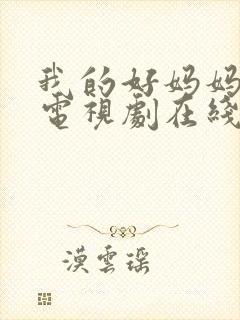 我的好妈妈
電視劇在綫
漠雲瑶